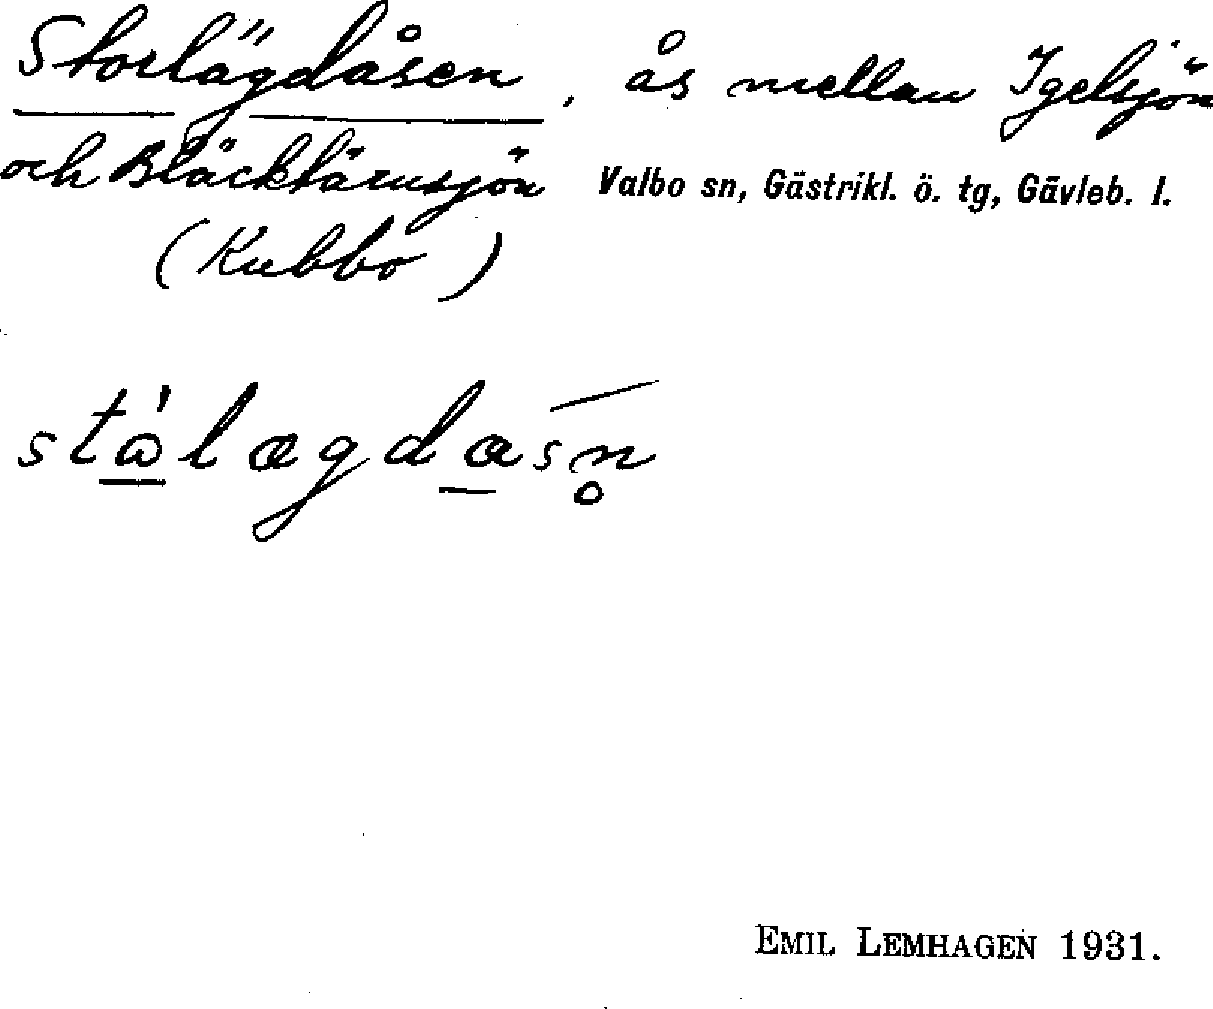 Storlägdåsen, ås mellan Igelsjön
och Bläcktärnsjön Valbo sn, Gästrikl. ö. tg, Gävleb. l.
(Kubbo)
stålægdåsn̥
EMIL LEMHAGEN 1931.